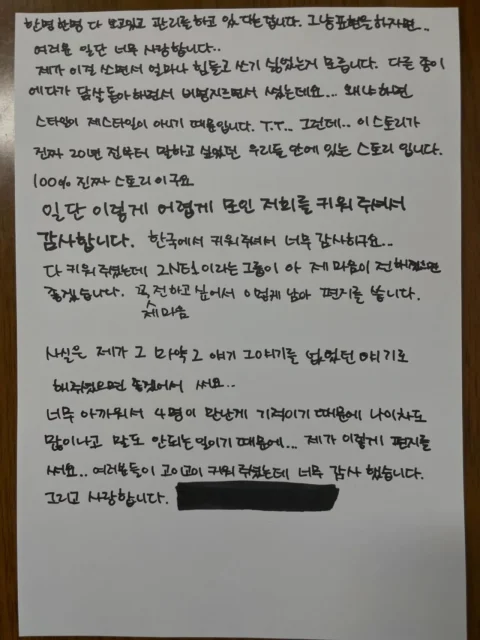 한명한명 다 보고있고 관리를하고 있 대는 답니다. 그냥 표현을 하자면..
여러분 일단 너무 사랑합니다..
제가 이걸 쓰면서 얼마나 힘들고 쓰기 싫었는지 모릅니다. 다른 종이
에다가 닭살 돋아하면서 비명지르면서 썼는데요... 왜냐하면
스타일이 제스타일이 아니기 때문입니다. T.T... 그런데.. 이스토리가
진짜 20년 전부터 말하고 싶었던 우리들 안에 있는 스토리 입니다.
100% 진짜 스토리이구요
일단 이렇게 어렵게 모인 저희를 키워주셔서
감사합니다. 한국에서 키워주셔서 너무 감사하구요...
다 키워주셨는데 2NE1이라는 그룹이 아 제 마음이 전해졌으면
좋겠습니다. 꼭 전하고 싶어서 이렇게 남아 편지를 씁니다.
제 마음
사실은 제가 그 마약 그 얘기 그얘기를 없었던 얘기로
해주셨으면 좋겠어서 써요...
너무 아까워서 4명이 만난게 기적이기 때문에 나이차도
많이나고 말도 안되는 일이기 때문에... 제가 이렇게 편지를
써요.. 여러분들이 고이고이 키워주셨는데 너무 감사했습니다.
그리고 사랑합니다.